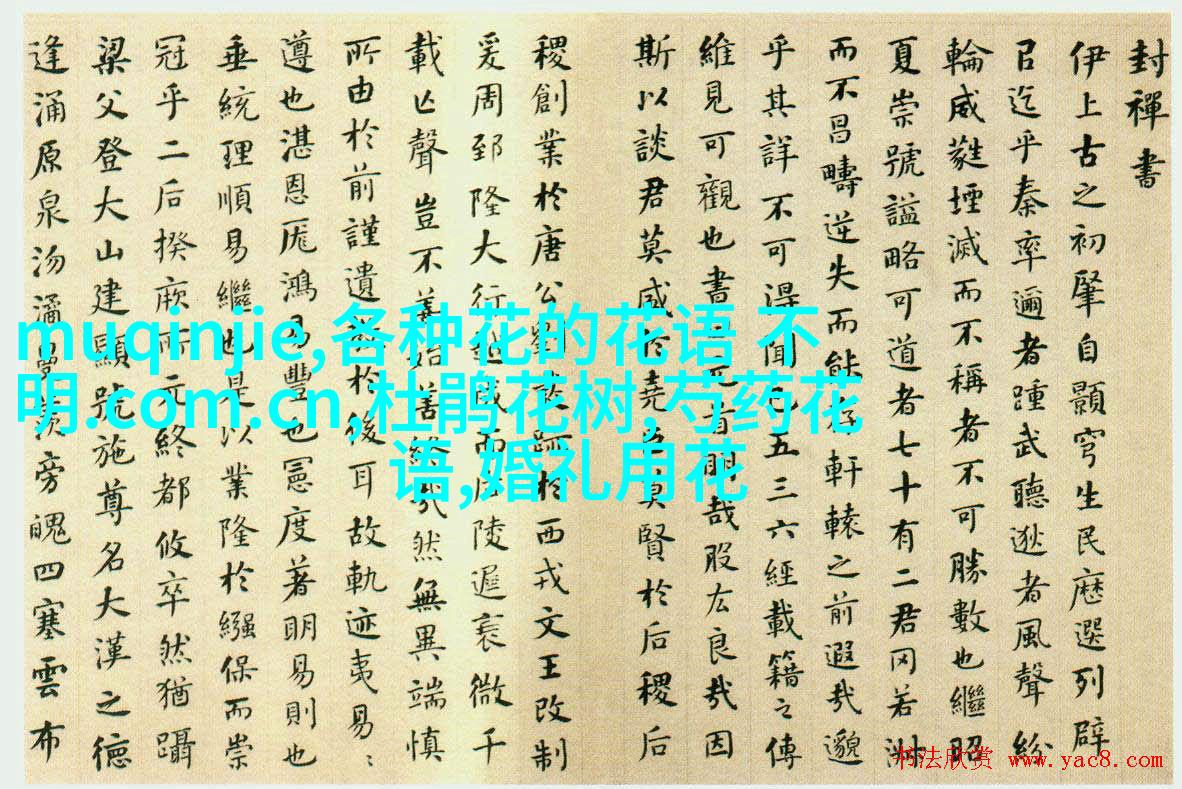 封禪書
伊上古之初肇自顥穹生民歷選列辟
㠯迄乎秦率邇者踵武聽逖者風聲紛
輪威蕤堙滅而不稱者不可勝數也繼昭
夏崇號謚略可道者七十有二君罔若淑
而不昌疇逆失而能存軒轅之前遐哉邈
乎其詳不可得聞已五三六經載籍之傳
維見可觀也書曰元首明哉股厷良哉因
斯以談君莫盛於堯臣莫賢於后稷后
稷創業於唐公劉發跡於西戎文王改制
爰周郅隆大行越成而后陵遲衰微千
載亡聲豈不善始善終哉然無異端慎
所由於前謹遺教於後耳故軌迹夷易〻
遵也湛恩厖鴻易豐也憲度著明易則也
垂統理順易繼也是以業隆於繈保而崇
冠乎二后揆厥所元終都攸卒然猶躡
梁父登大山建顯號施尊名大漢之德
逢涌原泉沕潏曼羨旁魄四塞雲布
muqinjie,各种花的花语 不
明.com.cn,杜鹃花树,芍药花
语,婚礼用花
书法欣赏 www.yac8.com